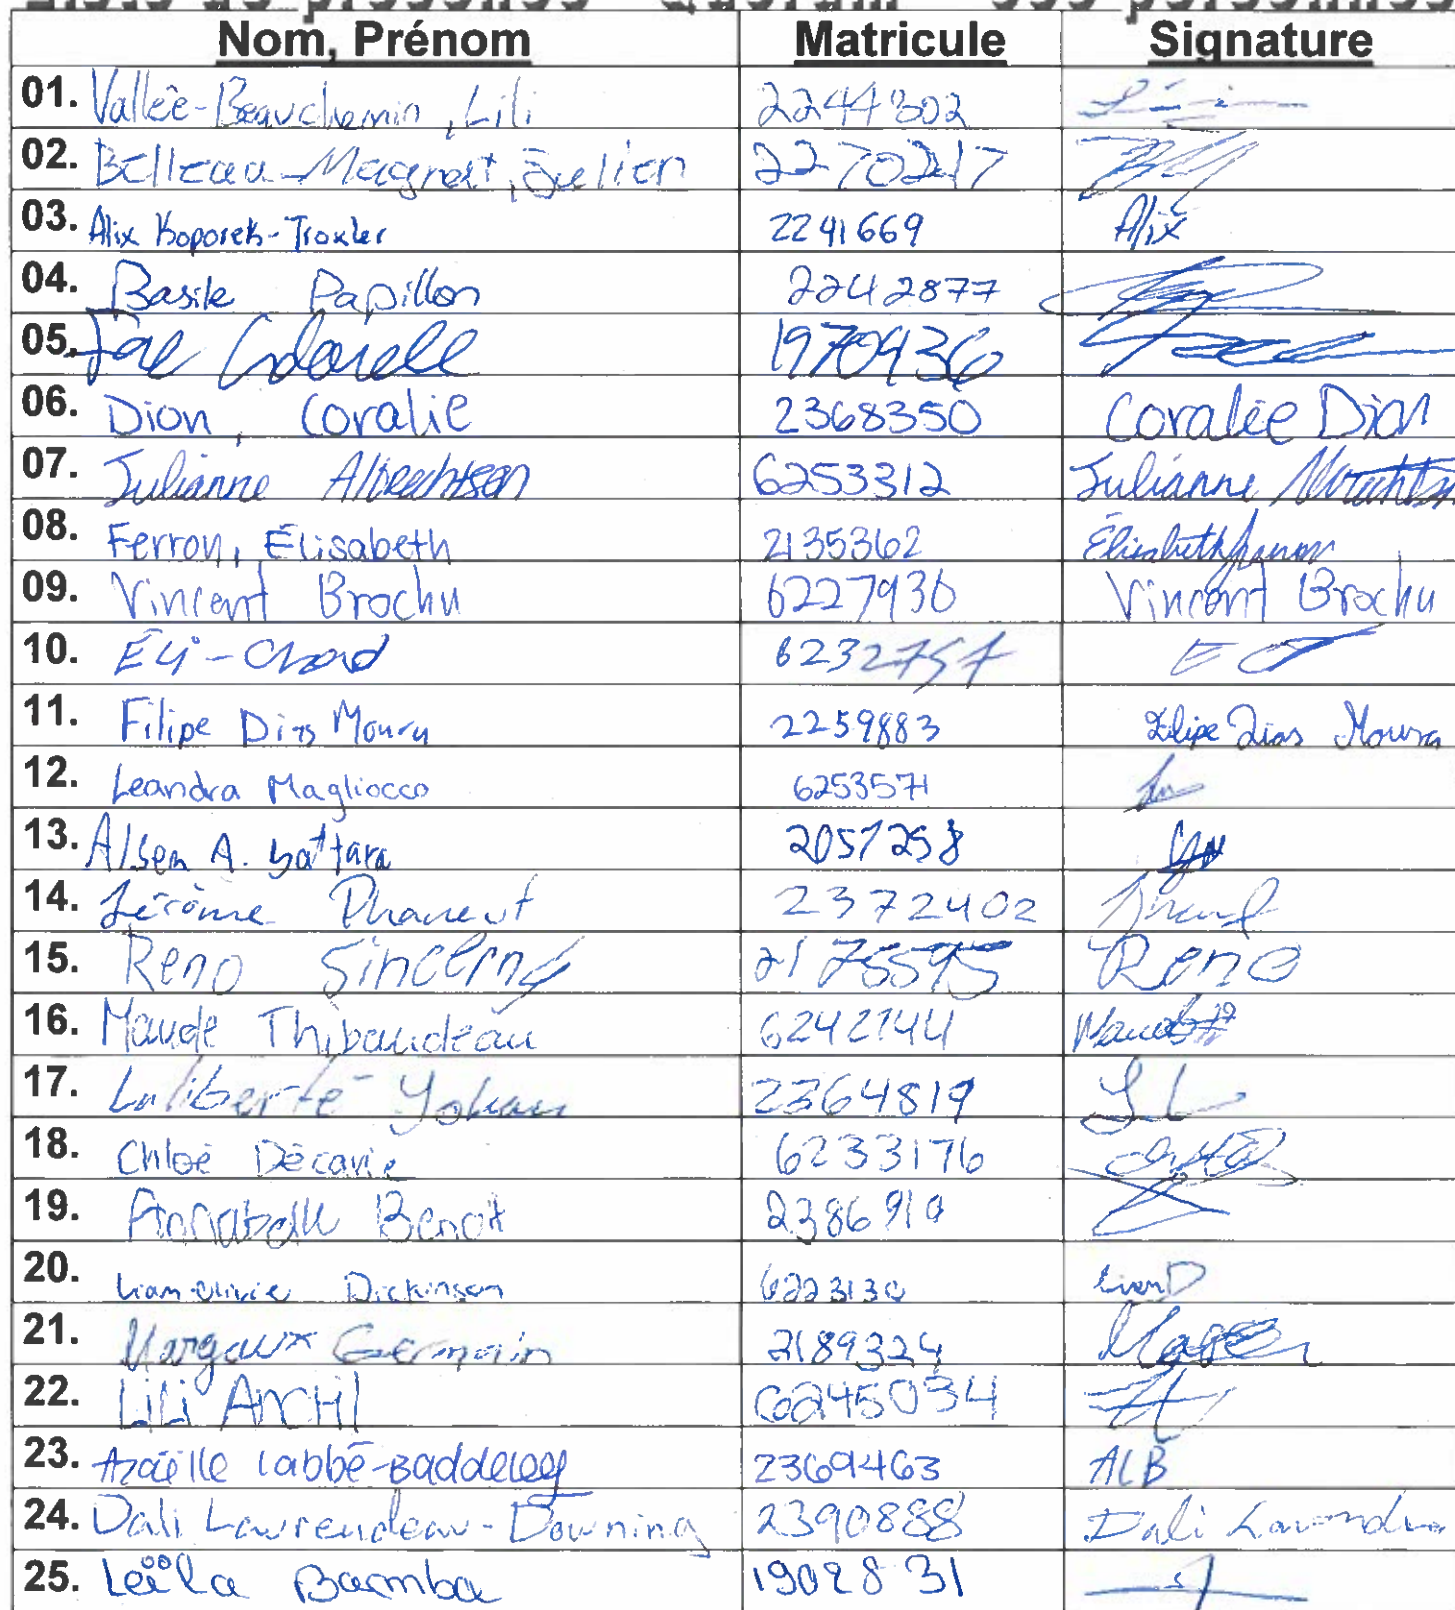 Liste de présence Quorum personnes
Nom, Prénom Matricule Signature
01. Vallée-Beauchemin, Lili 2244302
02. Belleau-Magnat, Julien 2270217
03. Alix Koporek-Troxler 2241669 Alix
04. Basile Papillon 2242877
05. 1970936
06. Dion, Coralie 2368350 Coralie Dion
07. Julianne Albrechtsen 6253312 Julianne Albrechtsen
08. Ferron, Élisabeth 2135362 Élisabeth Ferron
09. Vincent Brochu 6227936 Vincent Brochu
10. 6232757
11. Filipe Dias Moura 2259883 Filipe Dias Moura
12. Leandra Magliocco 6253571
13. A. 2057258
14. Jérôme Phaneuf 2372402
15. Reno Sincerny 2175595 Reno
16. Maude Thibaudeau 6242744
17. Laliberté Yohan 2364819 YL
18. Chloé Décarie 6233176
19. Annabelle Benoit 2386910
20. Liam-Olivie Dickinson 6223130 Liam D
21. Margaux Germain 2189324
22. Lili Anctil 6245034
23. Azaëlle Labbé-Baddeley 2369463 ALB
24. Dali Laurendeau-Downing 2390888 Dali
25. Leïla Bamba 1902831